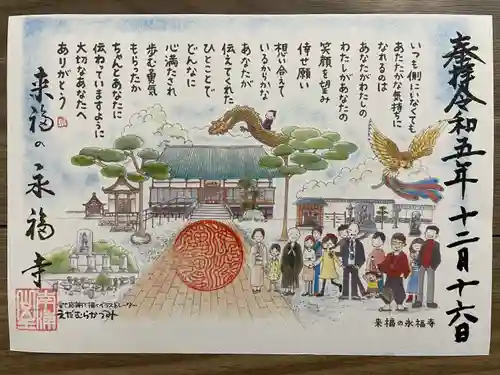 奉拝 令和五年 十二月十六日
いつも側にいなくても
あたたかな気持ちに
なれるのは
あなたがわたしの
わたしがあなたの
笑顔を望み
倖せ願い
想い合えて
いるからかな
あなたが
伝えてくれた
ひとことで
どんなに
心満たされ
歩む勇気
もらったか
ちゃんとあなたに
伝わっていますように
大切なあなたへ
ありがとう
来福の永福寺
えだむらかづみ
来福の永福寺